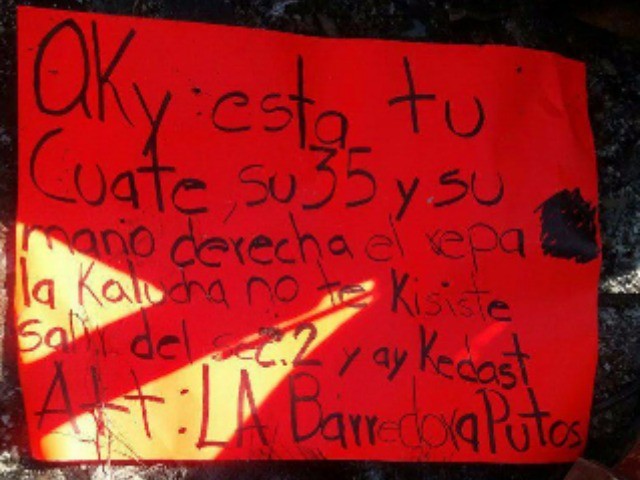 aKy esta tu
Cuate, su 35 y su
mano derecha el repa
la Kalucha no te Kisiste
salir del sec.2 y ay Kedast
Att: LA Barredora Putos